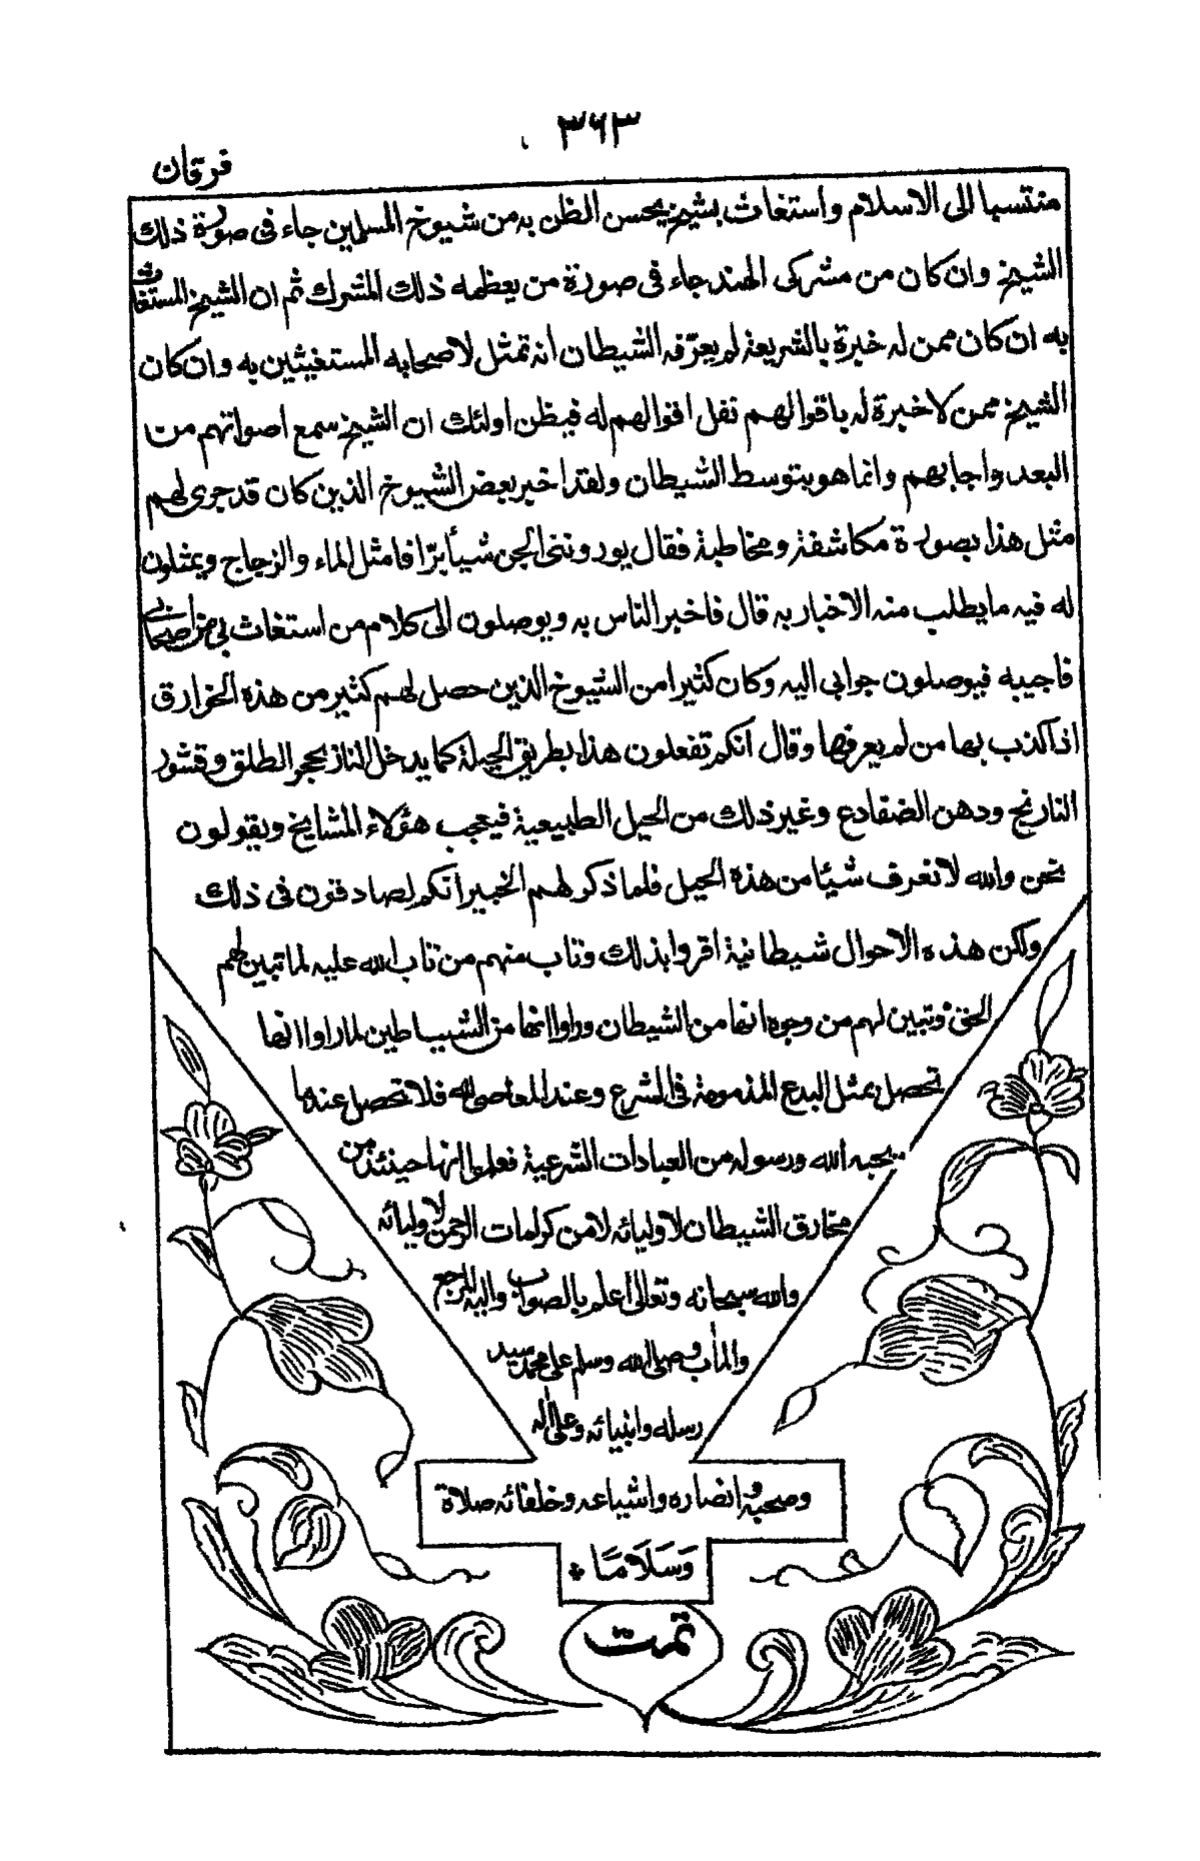 ٣٦٣
فرقان
منتسبا الى الاسلام واستغاث بشيخ يحسن الظن به من شيوخ المسلمين جاء فى صورة ذلك
الشيخ وان كان من مشركى الهند جاء فى صورة من يعظمه ذلك المشرك ثم ان الشيخ المستغاث
به ان كان ممن له خبرة بالشريعة لم يعرّفه الشيطان انه تمثل لاصحابه المستغيثين به وان كان
الشيخ ممن لا خبرة له باقوالهم نقل اقوالهم له فيظن اولئك ان الشيخ سمع اصواتهم من
البعد واجابهم وانما هو بتوسط الشيطان ولقد اخبر بعض الشيوخ الذين كان قد جرى لهم
مثل هذا بصورة مكاشفة ومخاطبة فقال يوروننى الجن شيأ برّاقا مثل الماء والزجاج ويمثلون
له فيه ما يطلب منه الاخبار به قال فاخبر الناس به ويوصلون الى كلام من استغاث بى من اصحابى
فاجيبه فيوصلون جوابى اليه وكان كثيرا من الشيوخ الذين حصل لهم كثير من هذه الخوارق
اذا كذب بها من لم يعرفها وقال انكم تفعلون هذا بطريق الحيلة كما يدخل النار بحجر الطلق وقشور
النارنج ودهن الضفادع وغير ذلك من الحيل الطبيعية فيعجب هؤلاء المشايخ ويقولون
نحن والله لا نعرف شيئا من هذه الحيل فلما ذكر لهم الخبير انكم لصادقون فى ذلك
ولكن هذه الاحوال شيطانية اقروا بذلك وتاب منهم من تاب الله عليه لما تبين لهم
الحق وتبين لهم من وجوه انها من الشيطان وراوا انها من الشياطين لما راوا انها
تحصل بمثل البدع المذمومة فى الشرع وعند المعاصى لله فلا تحصل عند ما
يحبه الله ورسوله من العبادات الشرعية فعلموا انها حينئذ من
مخارق الشيطان لاوليائه لا من كرامات الرحمن لاوليائه
والله سبحانه وتعالى اعلم بالصواب واليه المرجع
والمأب وصلى الله وسلم على محمد سيد
رسله وانبيائه وعلى اله
وصحبه وانصاره واشياعه وخلفائه صلاة
وَسَلَامَا *
تمت